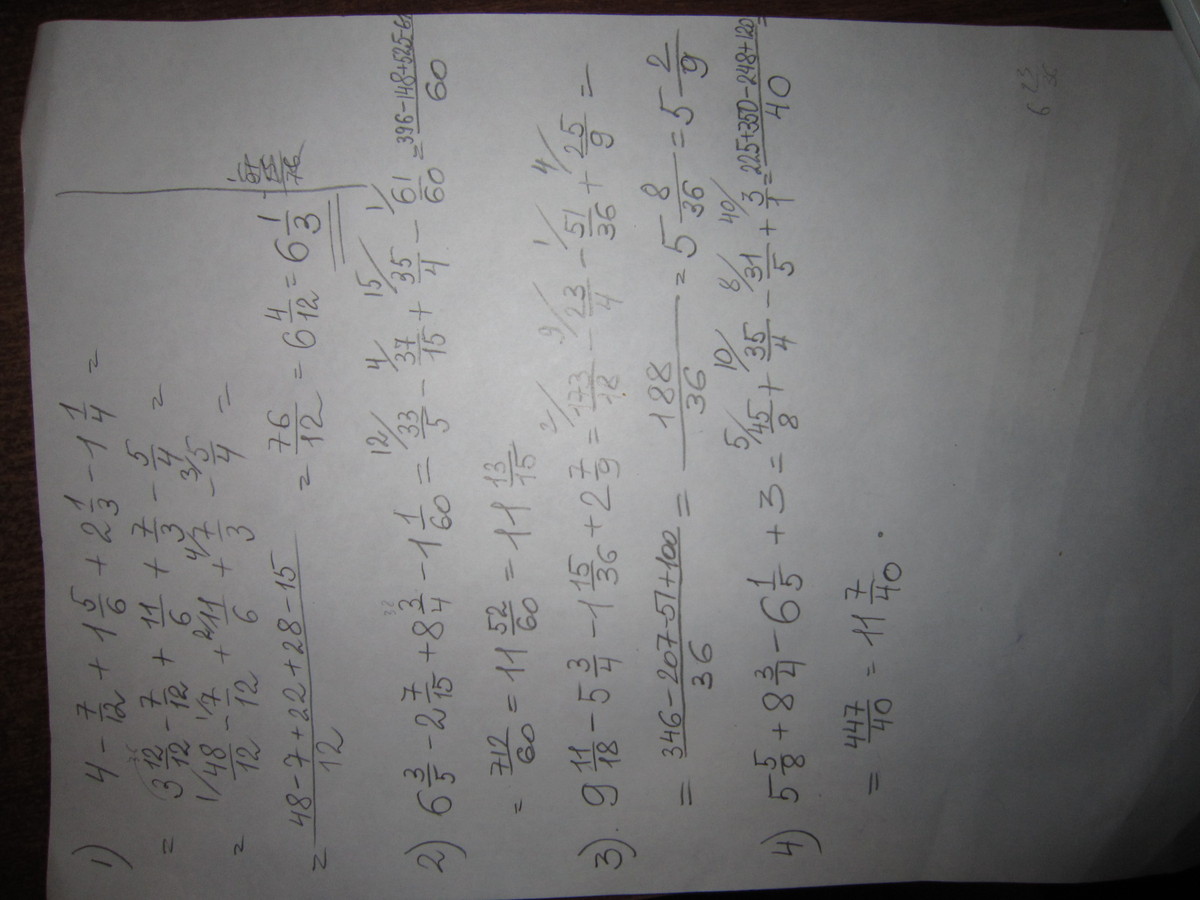 1) 4 - 7/12 + 1 5/6 + 2 1/3 - 1 1/4 =
= 3 12/12 - 7/12 + 11/6 + 7/3 - 5/4 =
= 1/ 48/12 - 1/ 7/12 + 2/ 11/6 + 4/ 7/3 - 3/ 5/4 =
= (48-7+22+28-15)/12 = 76/12 = 6 4/12 = 6 1/3
2) 6 3/5 - 2 7/15 + 8 3/4 - 1 1/60 = 12/ 33/5 - 4/ 37/15 + 15/ 35/4 - 1/ 61/60 = (396-148+525-6)/60
= 712/60 = 11 52/60 = 11 13/15
3). 9 11/18 - 5 3/4 - 1 15/36 + 2 7/9 = 2/ 173/18 - 9/ 23/4 - 1/ 51/36 + 4/ 25/9 =
= (346-207-51+100)/36 = 188/36 = 5 8/36 = 5 2/9
4) 5 5/8 + 8 3/4 - 6 1/5 + 3 = 5/ 45/8 + 10/ 35/4 - 8/ 31/5 + 40/ 3/1 = (225+350-248+120)/40 =
= 447/40 = 11 7/40.
6 23/36